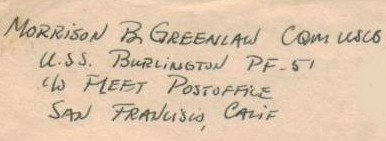 MORRISON B. GREENLAW CQM USCG
U.S.S. BURLINGTON PF-51
c/o FLEET POSTOFFICE
SAN FRANCISCO, CALIF